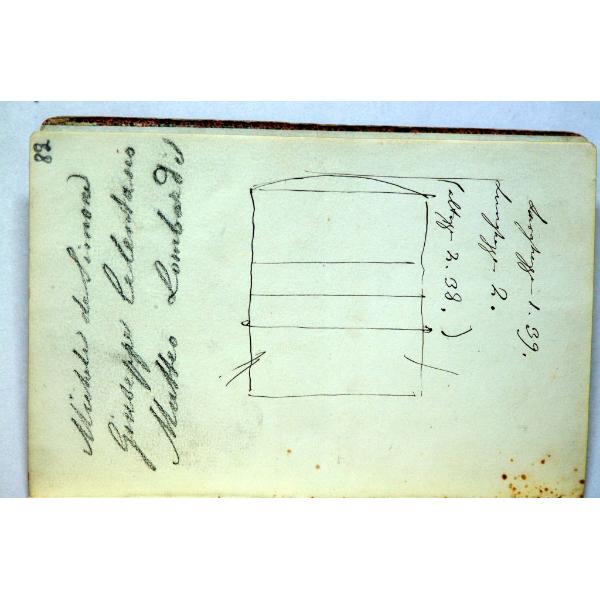 82
Michele de Simone
Giuseppe Celentano
Matteo Lombardi
larghezz - 1.39.
lunghezz - 2.
(altezz - 2.38.)